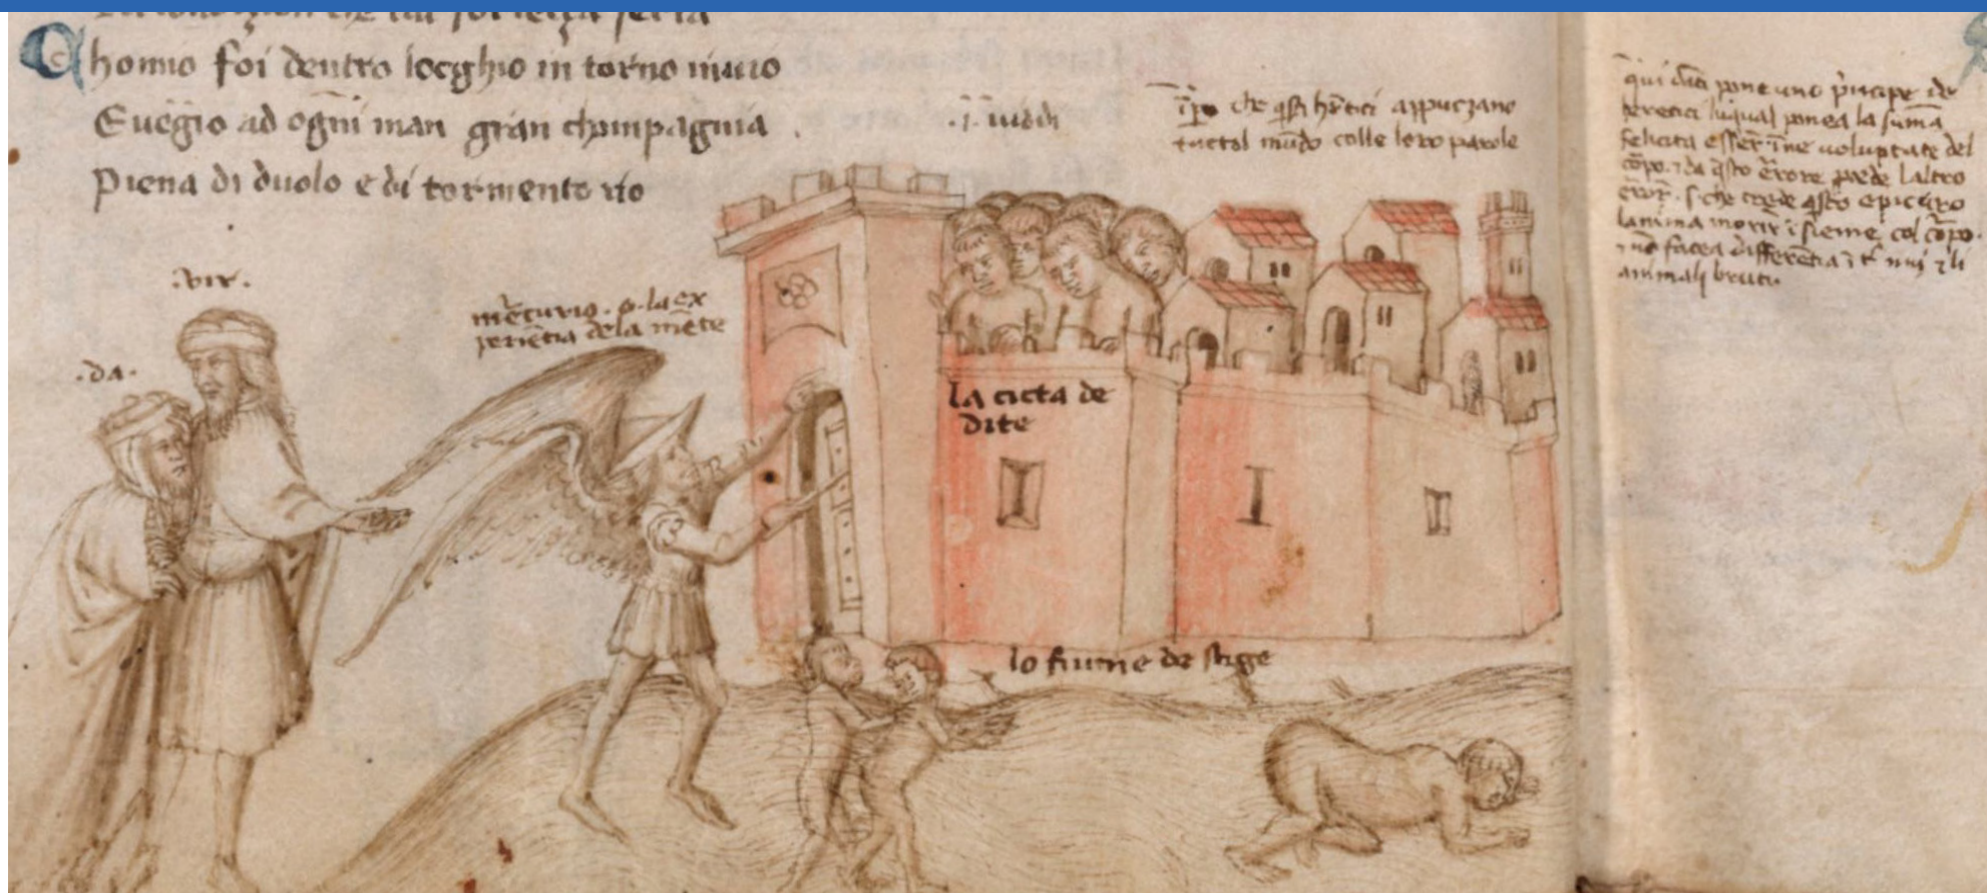 Chomio foi dentro locghio in torno inuio
Euegio ad ogni man gran chompagnia
Piena di duolo e di tormento rio
.vir.
.da.
mercurio. o. la ex
perientia dela mēte
che q̄sti hr̄etici appuzano
tuctol mūdo colle loro parole
la cicta de
dite
lo fiume de stige
qui dāti pone uno p̃ncipe de
heretici liqual ponea la suma
felicita esser ī ne uoluptate del
cōpo. da q̄sto errore laltro
che crede q̄sto epicuro
lanima morir īsieme col cōpo.
facea differētia li
animali bruti.